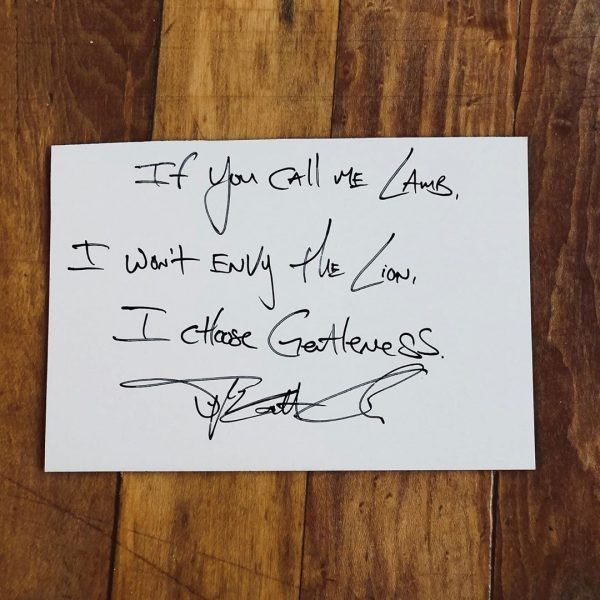 If you call me Lamb,
I won't envy the Lion.
I choose Gentleness.